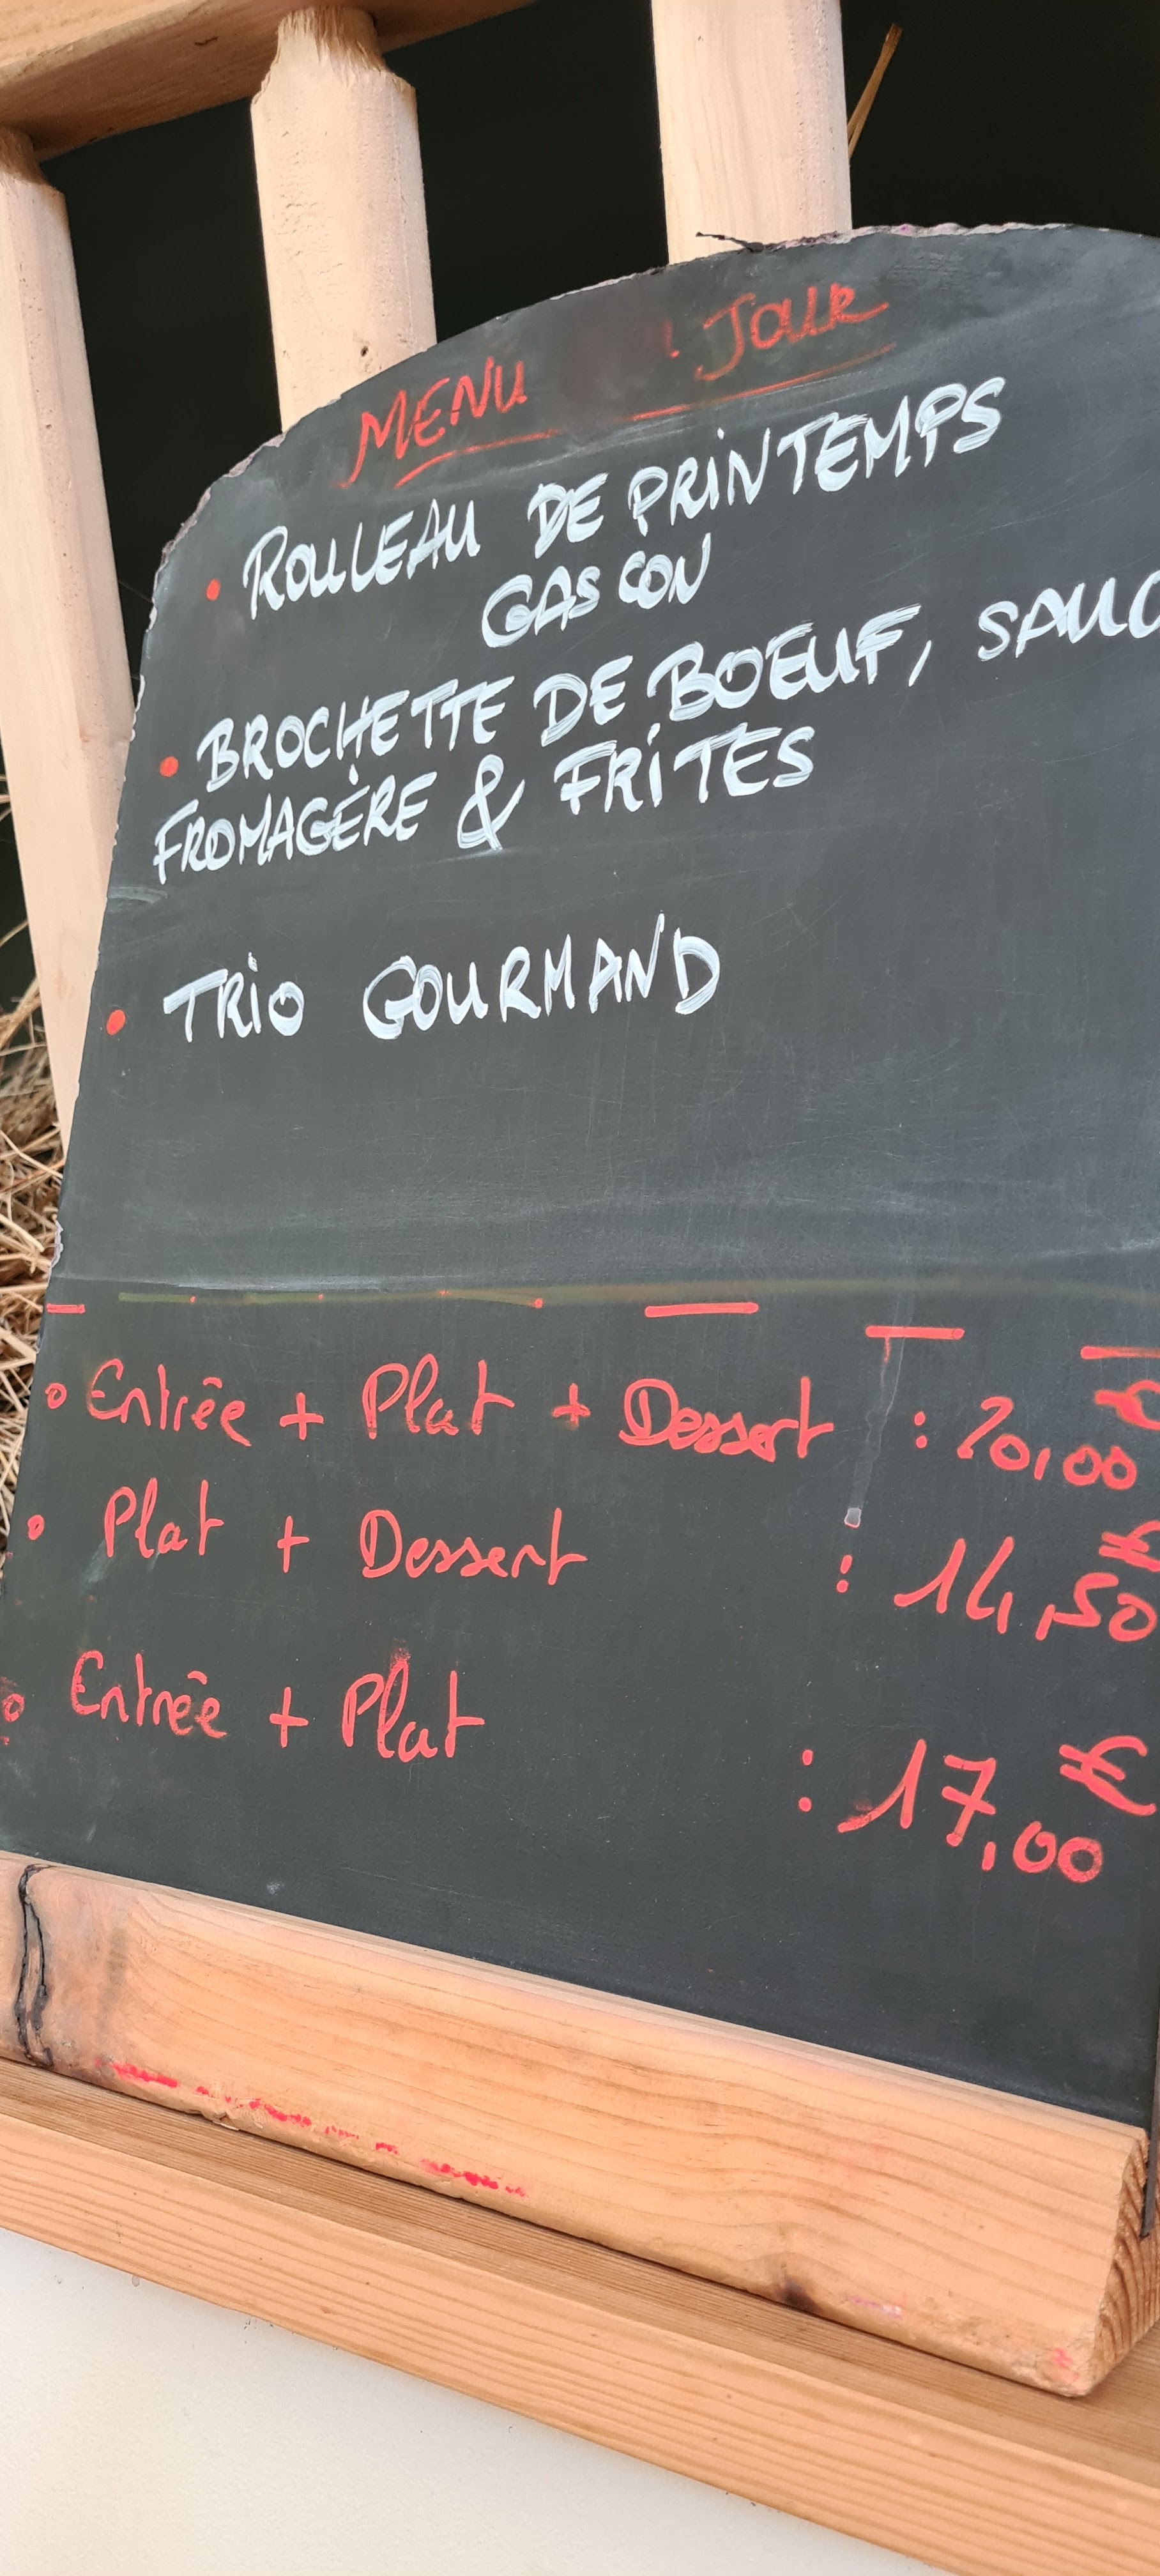 MENU JOUR
• ROULEAU DE PRINTEMPS
GASCON
• BROCHETTE DE BOEUF, SAUC
FROMAGÈRE & FRITES
• TRIO GOURMAND
° Entrée + Plat + Dessert : 20,00 €
° Plat + Dessert : 14,50 €
° Entrée + Plat : 17,00 €